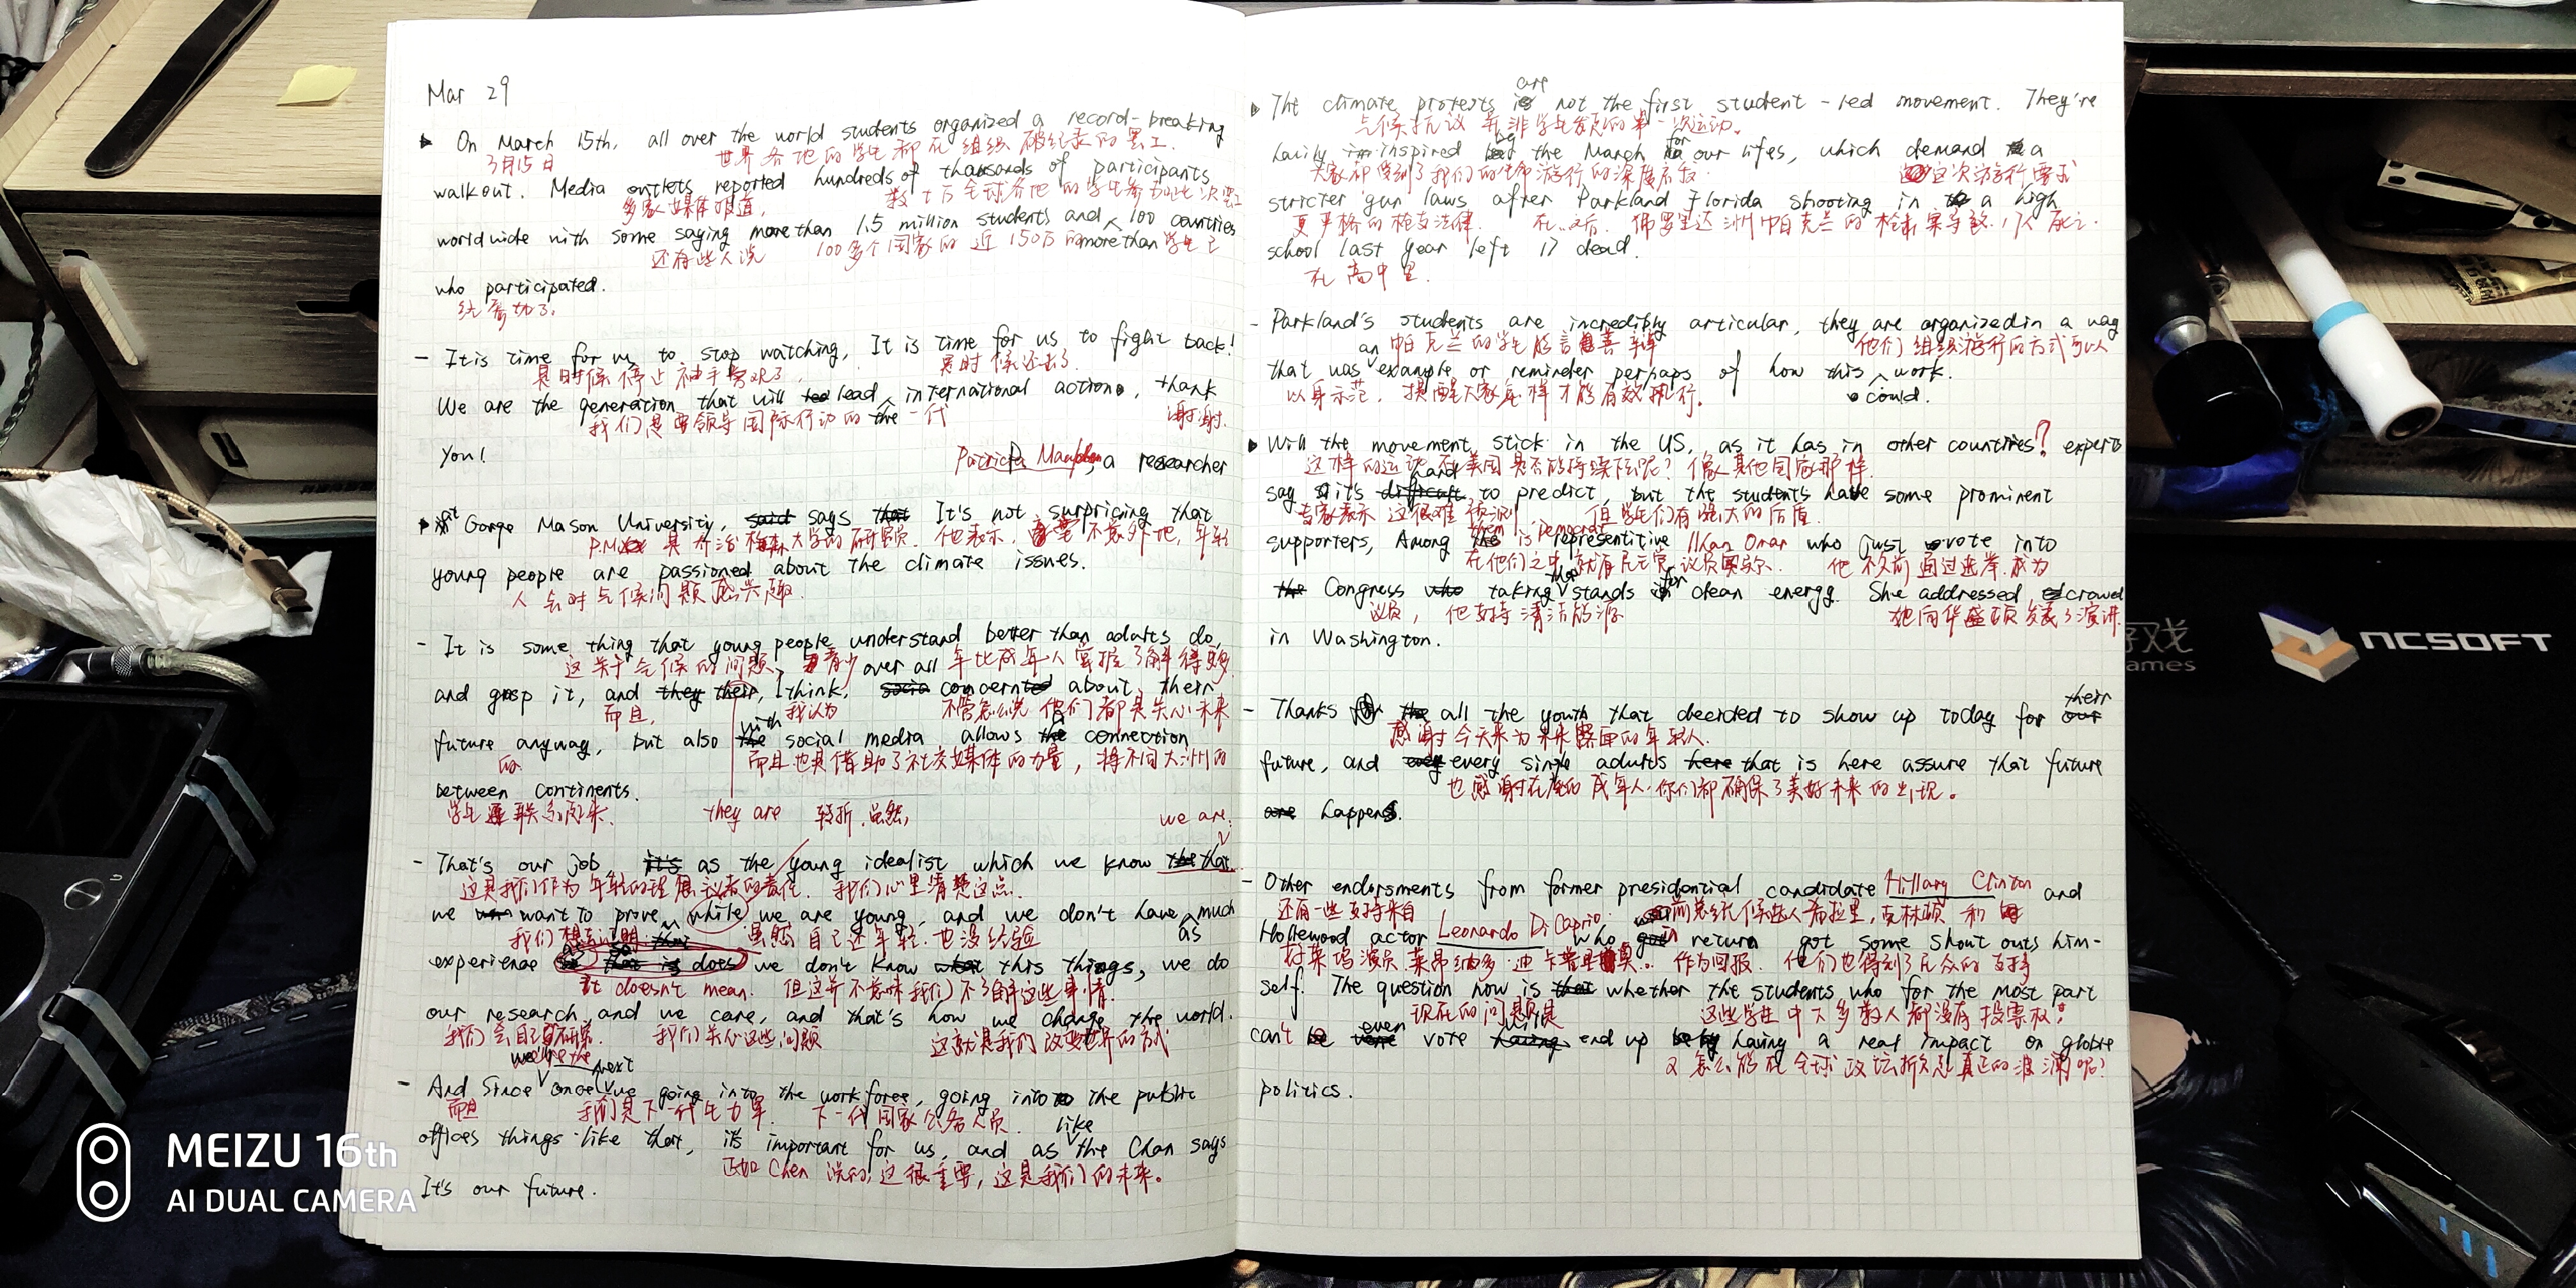 Mar 29
On March 15th, all over the world students organized a record-breaking
3月15日 世界各地的学生都在组织破纪录的罢工.
walkout. Media outlets reported hundreds of thousands of participants
多家媒体报道, 数十万全球各地的学生参加此次罢工
worldwide with some saying more than 1.5 million students and more than 100 countries
还有些人说 100多个国家的近150万的学生已
who participated.
经参加了.
- It is time for us to stop watching, It is time for us to fight back!
是时候停止袖手旁观了, 是时候还击了.
We are the generation that will lead international action, thank
我们是要领导国际行动的一代 谢谢.
you!
Patricia a researcher
at Gorge Mason University, says It's not surpricing that
大学的研究员. 他表示, 不意外地, 年轻
young people are passioned about the climate issues.
人会对气候问题感兴趣.
- It is some thing that young people understand better than adults do,
这关于气候的问题, 青少年比成年人掌握了解得更多
over all
and grasp it, and they their, I think, concern about their
而且, 我认为 不管怎么说 他们都是关心未来
future anyway, but also with social media allows a connection
的. 而且也是借助了社交媒体的力量, 将不同大洲的
between continents.
学生联系起来.
they are 转折. 虽然, we are.
- That's our job, as the young idealist which we know
这是我们作为年轻的理想主义者的责任. 我们心里清楚这点.
we want to prove while we are young, and we don't have as much
我们想去证明 虽然自己还年轻. 也没经验
experience so that is does we don't know this things, we do
it doesn't mean. 但这并不意味我们不了解这些事情.
our research and we care, and that's how we change the world.
我们会自己研究. 我们关心这些问题 这就是我们改变世界的方式
we're the next
- And Since once we going into the workforee, going into the public
而且 我们是下一代生力军. 下一代国家公务人员.
offices things like that, it's important for us, and as like the Chan says
正如 Chen 说的, 这很重要, 这是我们的未来。
It's our future.
The climate protests are not the first student-led movement. They're
气候抗议并非学生发起的第一次运动。
havily inspired by the March for our lifes, which demand a
大家都受到了我们的生命游行的深度启发. 这次游行要求
stricter gun laws after Parkland Florida shooting in a high
更严格的枪支法律. 在..之后. 佛罗里达州帕克兰的枪击案导致17人死亡.
school last year left 17 dead.
在高中里.
- Parkland's students are incredibly articular, they are organized in a way
帕克兰的学生能言善辩 他们组织游行的方式可以
that was an example or reminder perhaps of how this could work.
以身示范, 提醒大家怎样才能有效执行。
Will the movement stick in the US, as it has in other countries? experts
这样的运动在美国是否能持续下去呢? 像其他国家那样.
say it's hard to predict, but the students have some prominent
专家表示 这很难预测 但学生们有强大的后盾.
supporters, Among them is Democrat representitive Ilhan Omar who just vote into
在他们之中就有民主党议员奥马尔. 他不久前通过选举成为
Congress taking that stands for clean energy. She addressed crowd
议员, 他支持清洁能源. 她向华盛顿发表了演讲.
in Washington.
- Thanks for all the youth that decided to show up today for their
感谢今天来为未来露面的年轻人.
future, and every single adults that is here assure that future
也感谢在座的成年人. 你们都确保了美好未来的出现。
happens.
- Other endorsments from former presidontial candidate Hillary Clinton and
还有一些支持来自 前总统候选人希拉里, 克林顿 和
Hollewood actor Leonardo DiCaprio. who in return got some shout outs him-
好莱坞演员 莱昂纳多·迪卡普里奥.. 作为回报. 他们也得到了民众的支持
self. The question now is whether the students who for the most part
现在的问题是 这些学生中大多数人都没有投票权!
can't even vote will end up having a real impact on globle
又怎么能在全球政坛掀起真正的波澜呢?
politics.
NCSOFT
MEIZU 16th
AI DUAL CAMERA